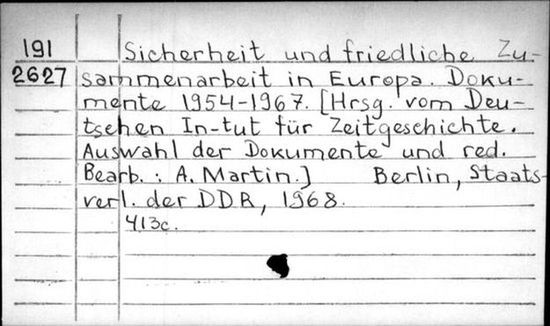 191 Sicherheit und friedliche Zu-
2627 sammenarbeit in Europa. Doku-
mente 1954-1967. [Hrsg. vom Deu-
tschen In-tut für Zeitgeschichte.
Auswahl der Dokumente und red.
Bearb.: A. Martin.] Berlin, Staats-
verl. der DDR, 1968.
413c.